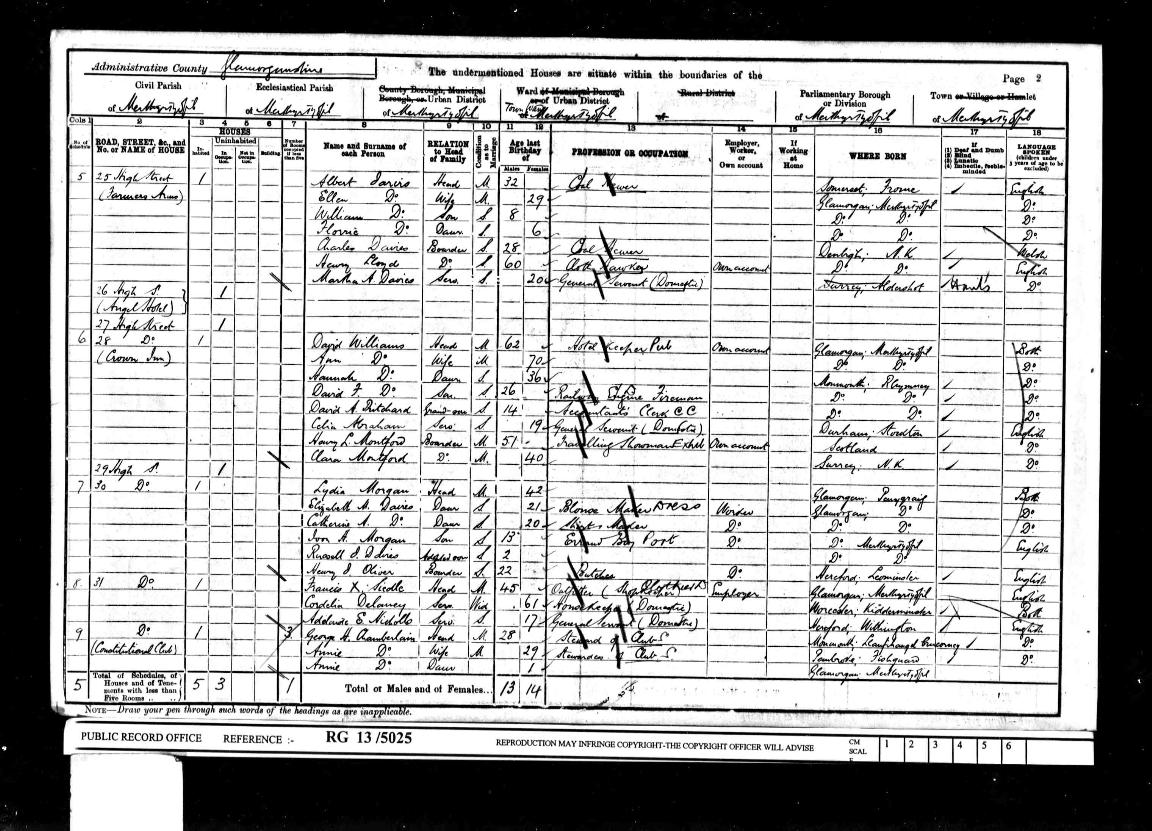 Administrative County Glamorganshire
The undermentioned Houses are situate within the boundaries of the
Page 2
Civil Parish of Merthyr Tydfil
Ecclesiastical Parish of Merthyr Tydfil
County Borough, Municipal Borough, or Urban District of Merthyr Tydfil
Ward of Municipal Borough or of Urban District Town Ward of Merthyr Tydfil
Rural District of
Parliamentary Borough or Division of Merthyr Tydfil
Town or Village or Hamlet of Merthyr Tydfil
Cols 1 2 3 4 5 6 7 8 9 10 11 12 13 14 15 16 17 18
No. of Schedule
ROAD, STREET, &c., and No. or NAME of HOUSE
HOUSES
Inhabited
Uninhabited
In Occupation
Not in Occupation
Building
Number of Rooms occupied if less than five
Name and Surname of each Person
RELATION to Head of Family
Condition as to Marriage
Age last Birthday of
Males Females
PROFESSION OR OCCUPATION
Employer, Worker, or Own account
If Working at Home
WHERE BORN
If (1) Deaf and Dumb (2) Blind (3) Lunatic (4) Imbecile, feeble-minded
LANGUAGE SPOKEN (children under 3 years of age to be excluded)
5 25 High Street 1 Albert Jarvis Head M 32 Coal Hewer Somerset; Frome English
(Farmers Arms) Ellen Do Wife M 29 Glamorgan; Merthyr Tydfil Do
William Do Son S 8 Do Do Do
Florrie Do Daur S 6 Do Do Do
Charles Davies Boarder S 28 Coal Hewer Denbigh; N.K Welsh
Henry Lloyd Do S 60 Cloth Hawker Own account Do Do English
Martha A Davies Serv. S 20 General Servant (Domestic) Surrey; Aldershot Hants Do
26 High St 1
(Angel Hotel)
27 High Street 1
6 28 Do 1 David Williams Head M 62 Hotel Keeper Pub Own account Glamorgan; Merthyr Tydfil Both
(Crown Inn) Ann Do Wife M 70 Do Do Do
Hannah Do Daur S 36 Monmouth; Rhymney Do
David F. Do Son S 26 Railway Engine Fireman Do Do Do
David A Pritchard Grand son S 14 Accountants Clerk CC Do Do Do
Celia Abraham Serv S 19 General Servant (Domestic) Durham; Stockton English
Henry L Montford Boarder M 51 Travelling Showman Own account Scotland Do
Clara Montford Do M 40 Surrey; N.K Do
29 High St 1
7 30 Do 1 Lydia Morgan Head M 42 Glamorgan; Penygraig Both
Elizabeth M. Davies Daur S 21 Blouse Maker Dress Worker Glamorgan; Do Do
Catherine A. Do Daur S 20 Maker Do Do Do Do
Ivor A. Morgan Son S 13 Errand Boy Port Do Do Merthyr Tydfil English
Russell J Davies Adopted son S 2 Do Do
Henry J Oliver Boarder S 22 Butcher Do Hereford; Leominster English
8 31 Do 1 Francis X. Head M 45 Outfitter (Shopkeeper) Employer Glamorgan; Merthyr Tydfil English
Cordelia Delaney Serv. Wid 61 Housekeeper (Domestic) Worcester; Kidderminster Both
Adelaide E. Nicholls Serv. S 17 General Servant (Domestic) Hereford; Withington English
9 Do 1 3 George H. Chamberlain Head M 28 Steward of Club S Monmouth; Do
(Constitutional Club) Annie Do Wife M 29 Stewardess of Club S Pembroke; Fishguard Do
Annie Do Daur 1 Glamorgan Merthyr Tydfil
5 Total of Schedules, of Houses and of Tenements with less than Five Rooms 5 3 1 Total of Males and of Females... 13 14
NOTE—Draw your pen through such words of the headings as are inapplicable.
PUBLIC RECORD OFFICE REFERENCE :- RG 13/5025 REPRODUCTION MAY INFRINGE COPYRIGHT-THE COPYRIGHT OFFICER WILL ADVISE CM SCAL E 1 2 3 4 5 6